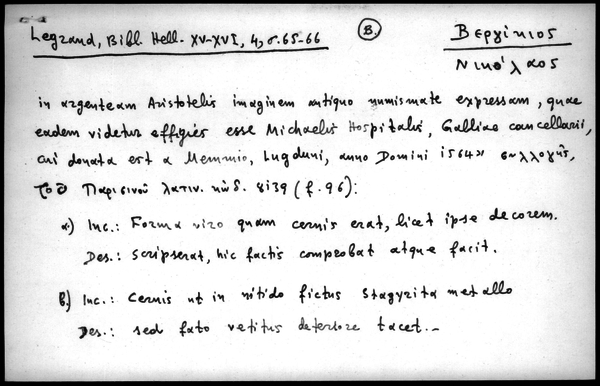 Legrand, Bibl. Hell. XV-XVI, 4, σ. 65-66
Β.
Βεργίκιος
Νικόλαος
in argenteam Aristotelis imaginem antiquo numismate expressam, quae
eadem videtur effigies esse Michaelis Hospitalis, Galliae cancellarii,
cui donata est a Memmio, Lugduni, anno Domini 1564» συλλογῆς,
τοῦ Παρισινοῦ λατιν. κώδ. 8139 (f. 96):
α) Inc.: Forma viro quam cernis erat, licet ipse decorem.
Des.: scripserat, hic factis comprobat atque facit.
β) Inc.: Cernis ut in nitido fictus Stagyrita metallo
Des.: sed fato vetitus deteriore tacet.-